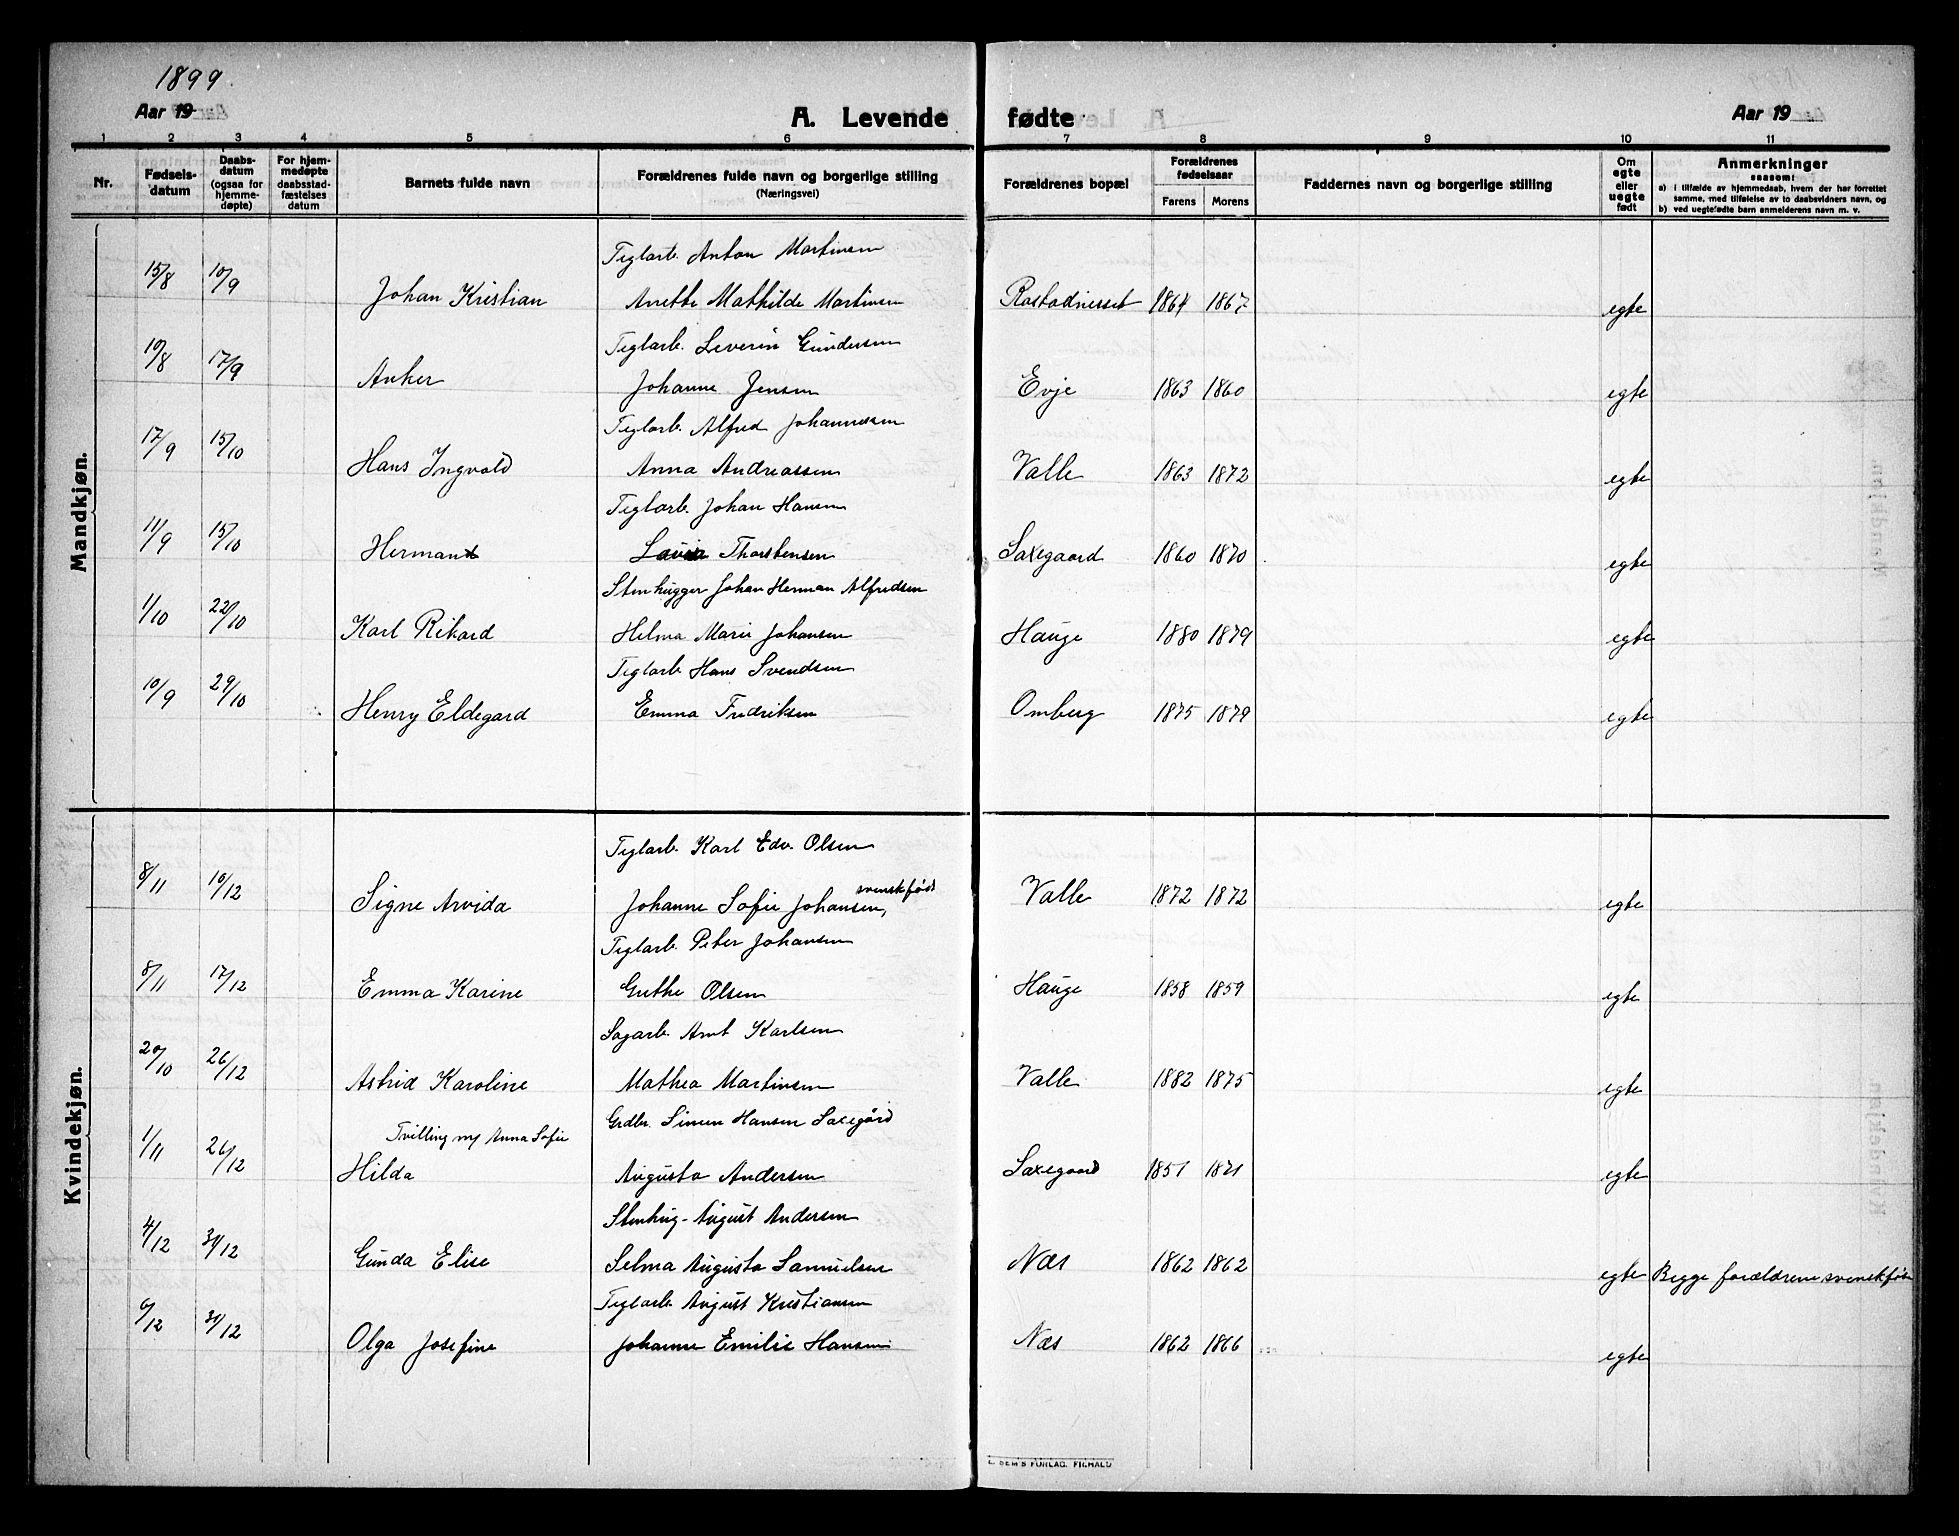 1899.
Aar 19
A. Levende fødte
Aar 19
1 2 3 4 5 6 7 8 9 10 11
Nr.
Fødsels-
datum
Daabs-
datum
(ogsaa for
hjemme-
døpte)
For hjem-
medøpte
daabsstad-
fæstelses
datum
Barnets fulde navn
Forældrenes fulde navn og borgerlige stilling
(Næringsvei)
Forældrenes bopæl
Forældrenes
fødselsaar
Farens Morens
Faddernes navn og borgerlige stilling
Om
egte
eller
uegte
født
Anmerkninger
saasom:
a) i tilfælde av hjemmedaab, hvem der har forrettet
samme, med tilføielse av to daabsvidners navn, og
b) ved uegtefødte barn anmelderens navn m. v.
Mandkjøn.
Teglarb. Anton Martinsen
15/8 10/9 Johan Kristian Anette Mathilde Martinsen Rostadnesset 1864 1867 egte
Teglarb. Severin Gundersen
10/8 17/9 Anker Johanne Jensen Evje 1863 1860 egte
Teglarb. Alfred Johannesen
17/9 15/10 Hans Ingvald Anna Andreassen Valle 1863 1872 egte
Teglarb. Johan Hansen
11/9 15/10 Herman Lovisa Thorstensen Saxegaard 1860 1870 egte
Stenhugger Johan Herman Alfredsen
1/10 22/10 Karl Rikard Hilma Marie Johansen Hauge 1880 1879 egte
Teglarb. Hans Svendsen
10/9 29/10 Henry Eldegard Emma Fredriksen Omberg 1875 1879 egte
Kvindekjøn.
Teglarb. Karl Edv. Olsen
8/11 10/12 Signe Arvida Johanne Sofie Johansen, svenskfødt Valle 1872 1872 egte
Teglarb. Peter Johansen
8/11 17/12 Emma Karine Grethe Olsen Hauge 1858 1859 egte
Sagarb. Arnt Karlsen
20/10 26/12 Astrid Karoline Mathea Martinsen Valle 1882 1875 egte
Tvilling m/ Anna Sofie Grdbr. Simen Hansen Saxegård
1/11 26/12 Hilda Augusta Andersen Saxegaard 1851 1871 egte
Stenhug. August Andersen
4/12 31/12 Gunda Elise Selma Augusta Samuelsen Næs 1862 1862 egte Begge forældrene svenskfødt
Teglarb. August Kristiansen
6/12 31/12 Olga Josefine Johanne Emilie Hansen Næs 1862 1866 egte
E. SEM'S FORLAG, FR.HALD